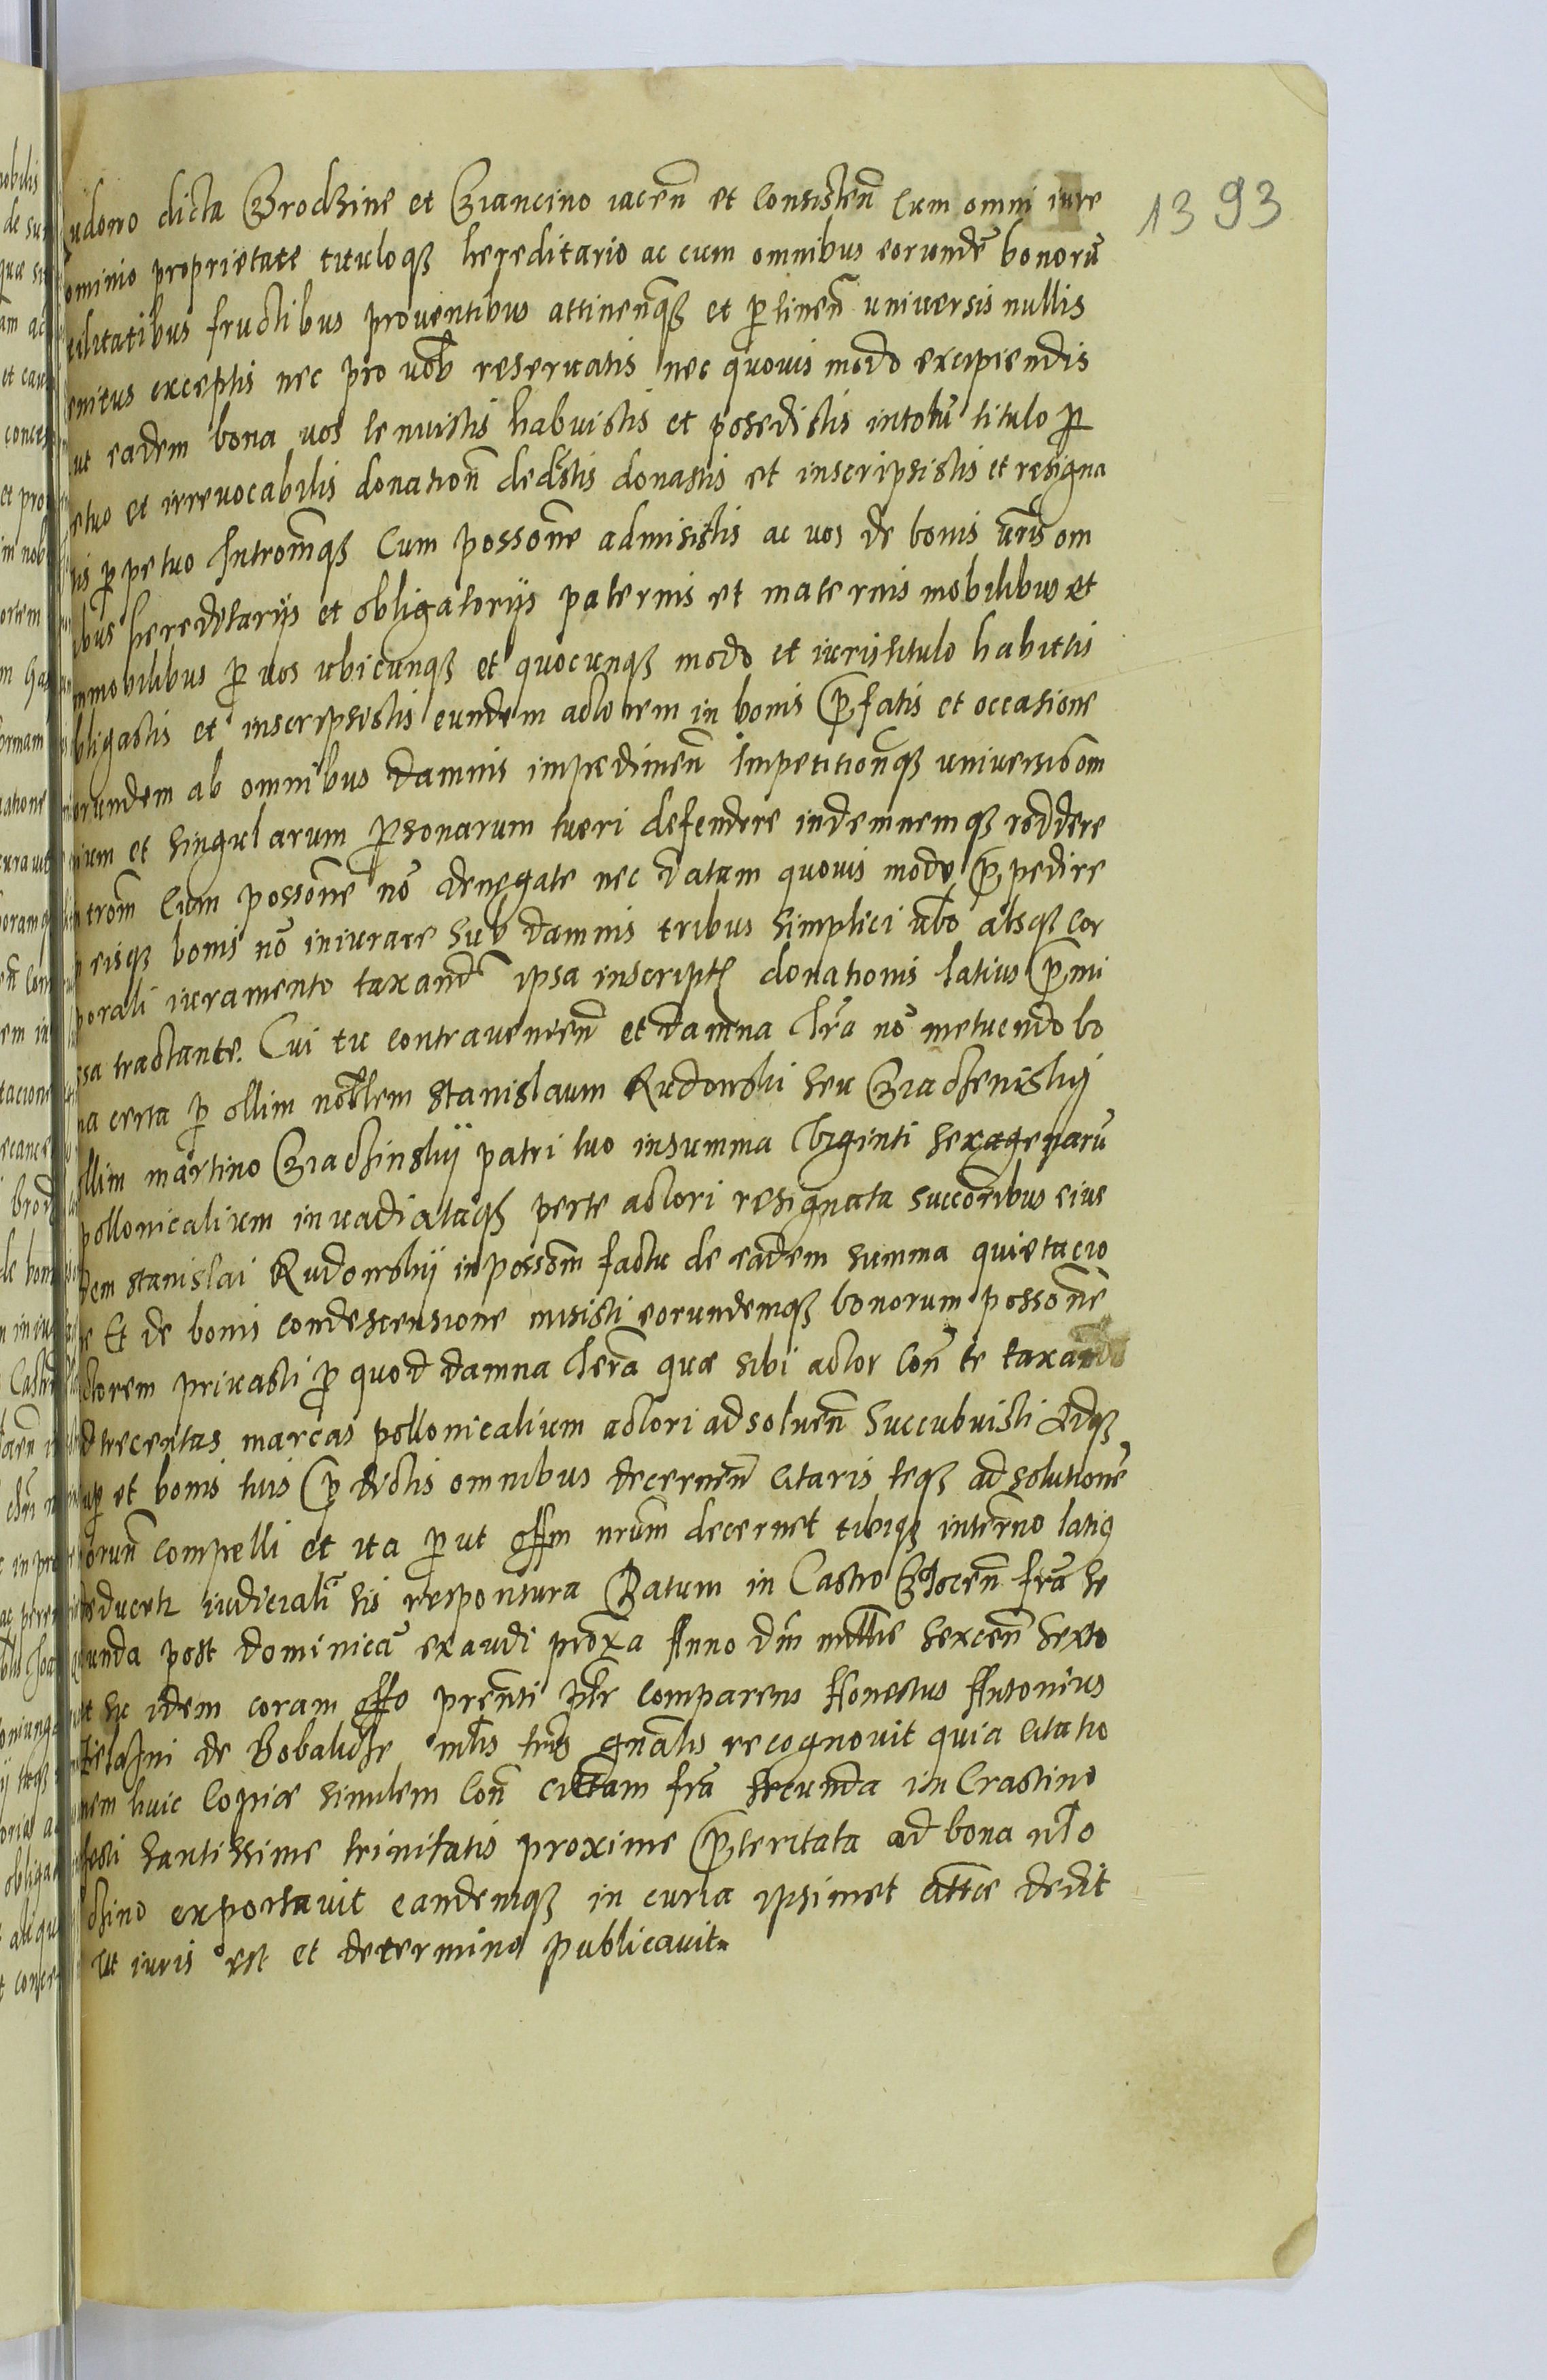 1393
udowo dicta Grodzine et Grancino iacen et consisten cum omni iure
ominio proprietate tituloqȝ hereditario ac cum omnibus eorunde bonoru
tilitatibus fructibus proventibus attinenqȝ et ptinen universis nullis
enitus exceptis nec pro vob reservatis nec quovis modo excipiendis
ut eadem bona vos tenuistis habuistis et posedistis intotu titulo p
etuo et irrevocabilis donation dedistis donastis et inscripsistis et resigna
tis ppetuo Intromqȝ cum possone admisistis ac vos de bonis vris om
ibus hereditariis et obligatoriis paternis et maternis mobilibus et
mmobilibus p vos ubicunqȝ et quocunqȝ modo et iuris titulo habitis
bligastis et inscripsistis eundem actorem in bonis pfatis et occasione
orundem ab omnibus damnis impedimen impetitionqȝ universis om
nium et singularum psonarum tueri defendere indemnemqȝ reddere
ntrom cum possone no denegate nec datam quovis modo ppedire
n eisqȝ bonis no iniurare sub damnis tribus simplici vbo absqȝ cor
porali iuramento taxand ipsa inscript donationis latius pmi
ssa tractante. Cui tu contravenien et damna tra no metuendo bo
na certa p ollim noblem Stanislaum Rudowski seu
ollim martino patri tuo insumma sexagenaru
pollonicalium invadiataqȝ perte actori resignata succoribus eius
dem Stanislai Rudowskij inpossom facta de eadem summa quietacio
e Et de bonis condescensione misisti eorundemqȝ bonorum possone
ctorem privasti p quod damna tera quæ sibi actor con te taxando
d trecentas marcas pollonicalium actori adsoluen succubuisti Adqȝ
up et bonis tuis pdictis omnibus decernen citaris teqȝ ad solutione
orun compelli et ita put offm nrum decernet tibiqȝ intermo latiq
educetr iudiciali sis responsura Datum in Castro fria se
cunda post dominica exaudi proxa Anno dni mille sexcen sexto
et sic idem coram offo prenti pler comparens Honestus Antonius
de mlis tris gnalis recognovit quia citatio
nem huic Copiæ similem con Citatam fria secunda in Crastino
festi santissime trinitatis proxime pteritata ad bona
exportavit eandemqȝ in curia ipsimet attæ dedit
ut iuris est et determino publicavit